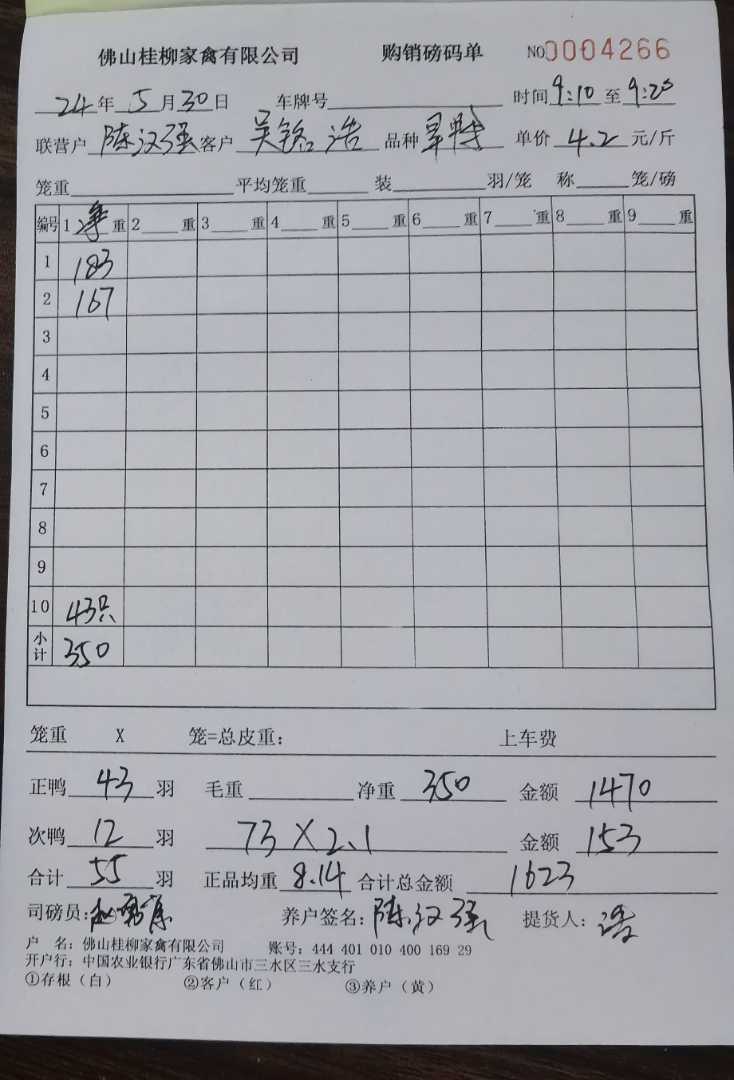 佛山桂柳家禽有限公司 购销磅码单 NO0004266
24年5月30日 车牌号 时间9:10至9:20
联营户 陈汉强 客户 吴铭浩 品种 单价 4.2 元/斤
笼重 平均笼重 装 羽/笼 称 笼/磅
编号 1 净 重 2 重 3 重 4 重 5 重 6 重 7 重 8 重 9 重
1 183
2 167
3
4
5
6
7
8
9
10 43只
小计 350
笼重 X 笼=总皮重: 上车费
正鸭 43 羽 毛重 净重 350 金额 1470
次鸭 12 羽 73×2.1 金额 153
合计 55 羽 正品均重 8.14 合计总金额 1623
司磅员: 养户签名: 陈汉强 提货人: 浩
户 名: 佛山桂柳家禽有限公司 账号: 444 401 010 400 169 29
开户行: 中国农业银行广东省佛山市三水区三水支行
①存根（白） ②客户（红） ③养户（黄）